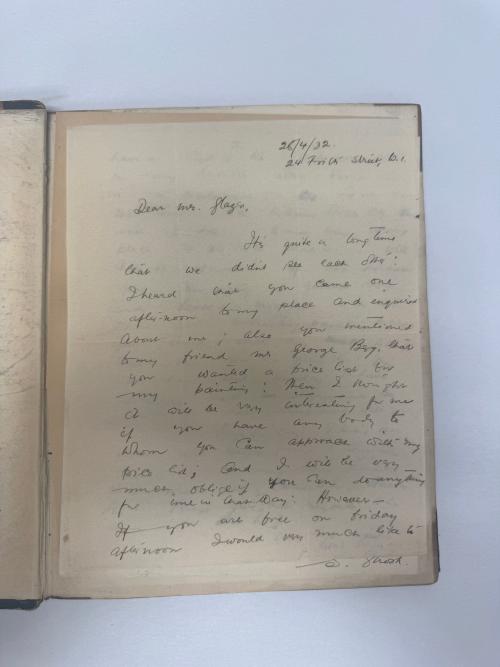 26/4/32.
24 Frith Street, W.1.
Dear Mr.
It's quite a long time
that we didn't see each other.
I heard that you came one
afternoon to my place and enquired
about me; also you mentioned
to my friend Mr George that
you wanted a price list for
my painting: then I thought
it will be very interesting for me
if you have any body to
whom you can approach with my
price list; and I will be very
much oblige if you can do anything
for me in that way: However —
If you are free on friday
afternoon I would very much like to